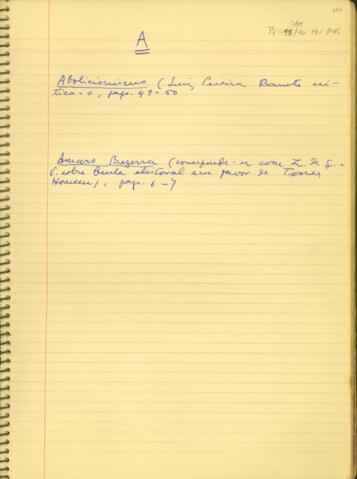 A
Abolicionismo (Luiz Pereira Barreto cri-
tica-o, pags. 49-50
Amaro Bezerra (corresponde-se com Z. de G.
sobre burla eleitoral em favor de Torres
Homem), pags. 6-7